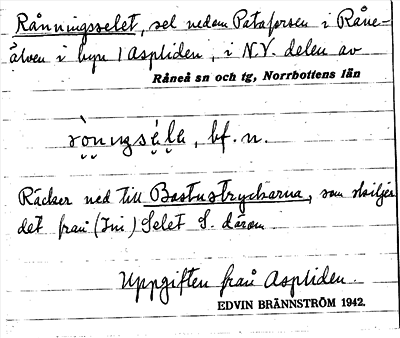 Rånningsselet, sel nedom Pataforsen i Råne-
älven i byn Aspliden, i N.V. delen av
Råneå sn och tg, Norrbottens län
rònıŋsé̩lə, bf. n.
Räcker ned till Bastustryckarna, som skiljer
det från (Ini) Selet S. därom
Uppgiften från Aspliden.
EDVIN BRÄNNSTRÖM 1942.